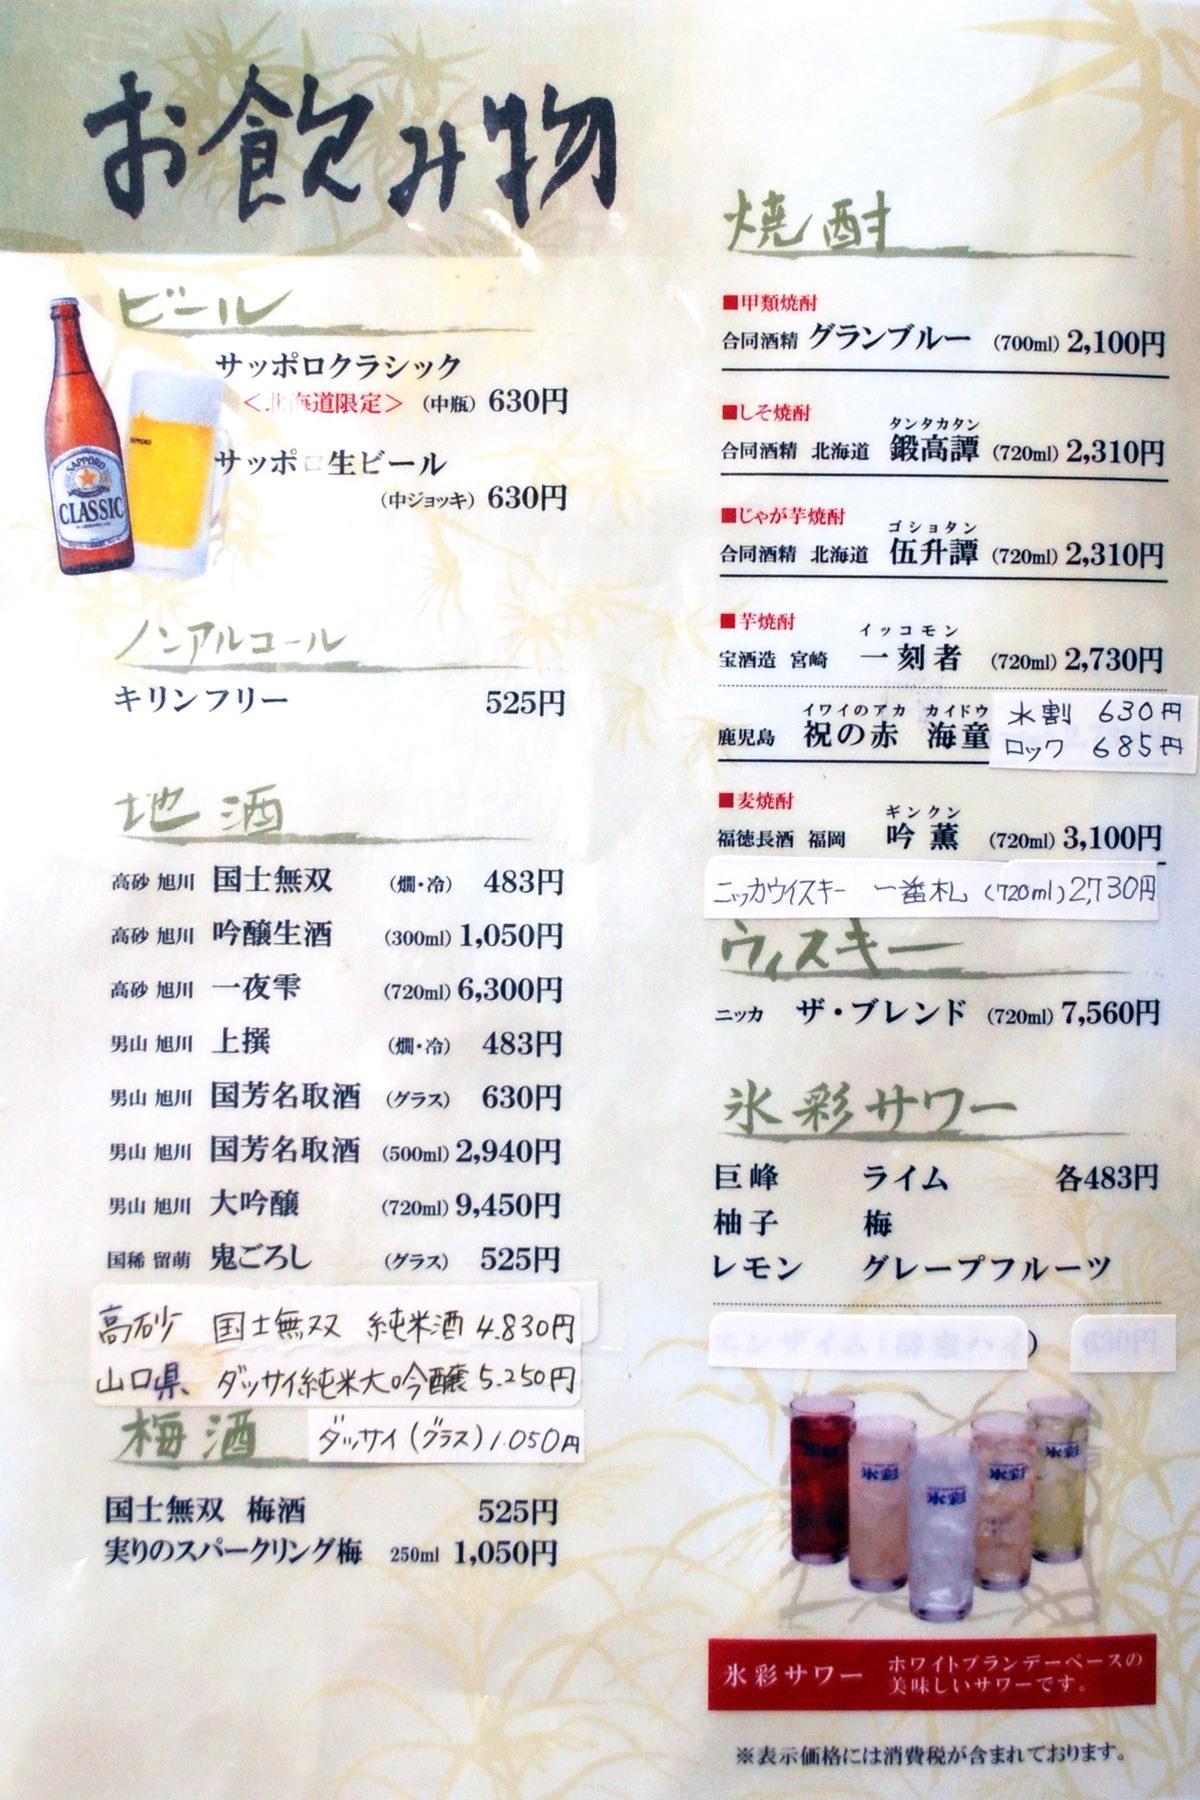 お飲み物
ビール
サッポロクラシック
＜北海道限定＞ （中瓶） 630円
サッポロ生ビール
（中ジョッキ） 630円
SAPPORO
CLASSIC
SAPPORO
ノンアルコール
キリンフリー 525円
地酒
高砂 旭川 国士無双 （燗・冷） 483円
高砂 旭川 吟醸生酒 （300ml） 1,050円
高砂 旭川 一夜雫 （720ml） 6,300円
男山 旭川 上撰 （燗・冷） 483円
男山 旭川 国芳名取酒 （グラス） 630円
男山 旭川 国芳名取酒 （500ml） 2,940円
男山 旭川 大吟醸 （720ml） 9,450円
国稀 留萌 鬼ごろし （グラス） 525円
高砂 国士無双 純米酒 4.830円
山口県 ダッサイ純米大吟醸 5.250円
梅酒
ダッサイ（グラス）1.050円
国士無双 梅酒 525円
実りのスパークリング梅 250ml 1,050円
焼酎
■甲類焼酎
合同酒精 グランブルー （700ml） 2,100円
■しそ焼酎
タンタカタン
合同酒精 北海道 鍛高譚 （720ml） 2,310円
■じゃが芋焼酎
ゴショタン
合同酒精 北海道 伍升譚 （720ml） 2,310円
■芋焼酎
イッコモン
宝酒造 宮崎 一刻者 （720ml） 2,730円
イワイのアカ カイドウ
鹿児島 祝の赤 海童
水割 630円
ロック 685円
■麦焼酎
ギンクン
福徳長酒 福岡 吟薫 （720ml） 3,100円
ニッカウイスキー 一番札 （720ml）2,730円
ウィスキー
ニッカ ザ・ブレンド （720ml） 7,560円
氷彩サワー
巨峰 ライム 各483円
柚子 梅
レモン グレープフルーツ
エンザイム（酵素ハイ） 630円
氷彩サワー ホワイトブランデーベースの
美味しいサワーです。
※表示価格には消費税が含まれております。